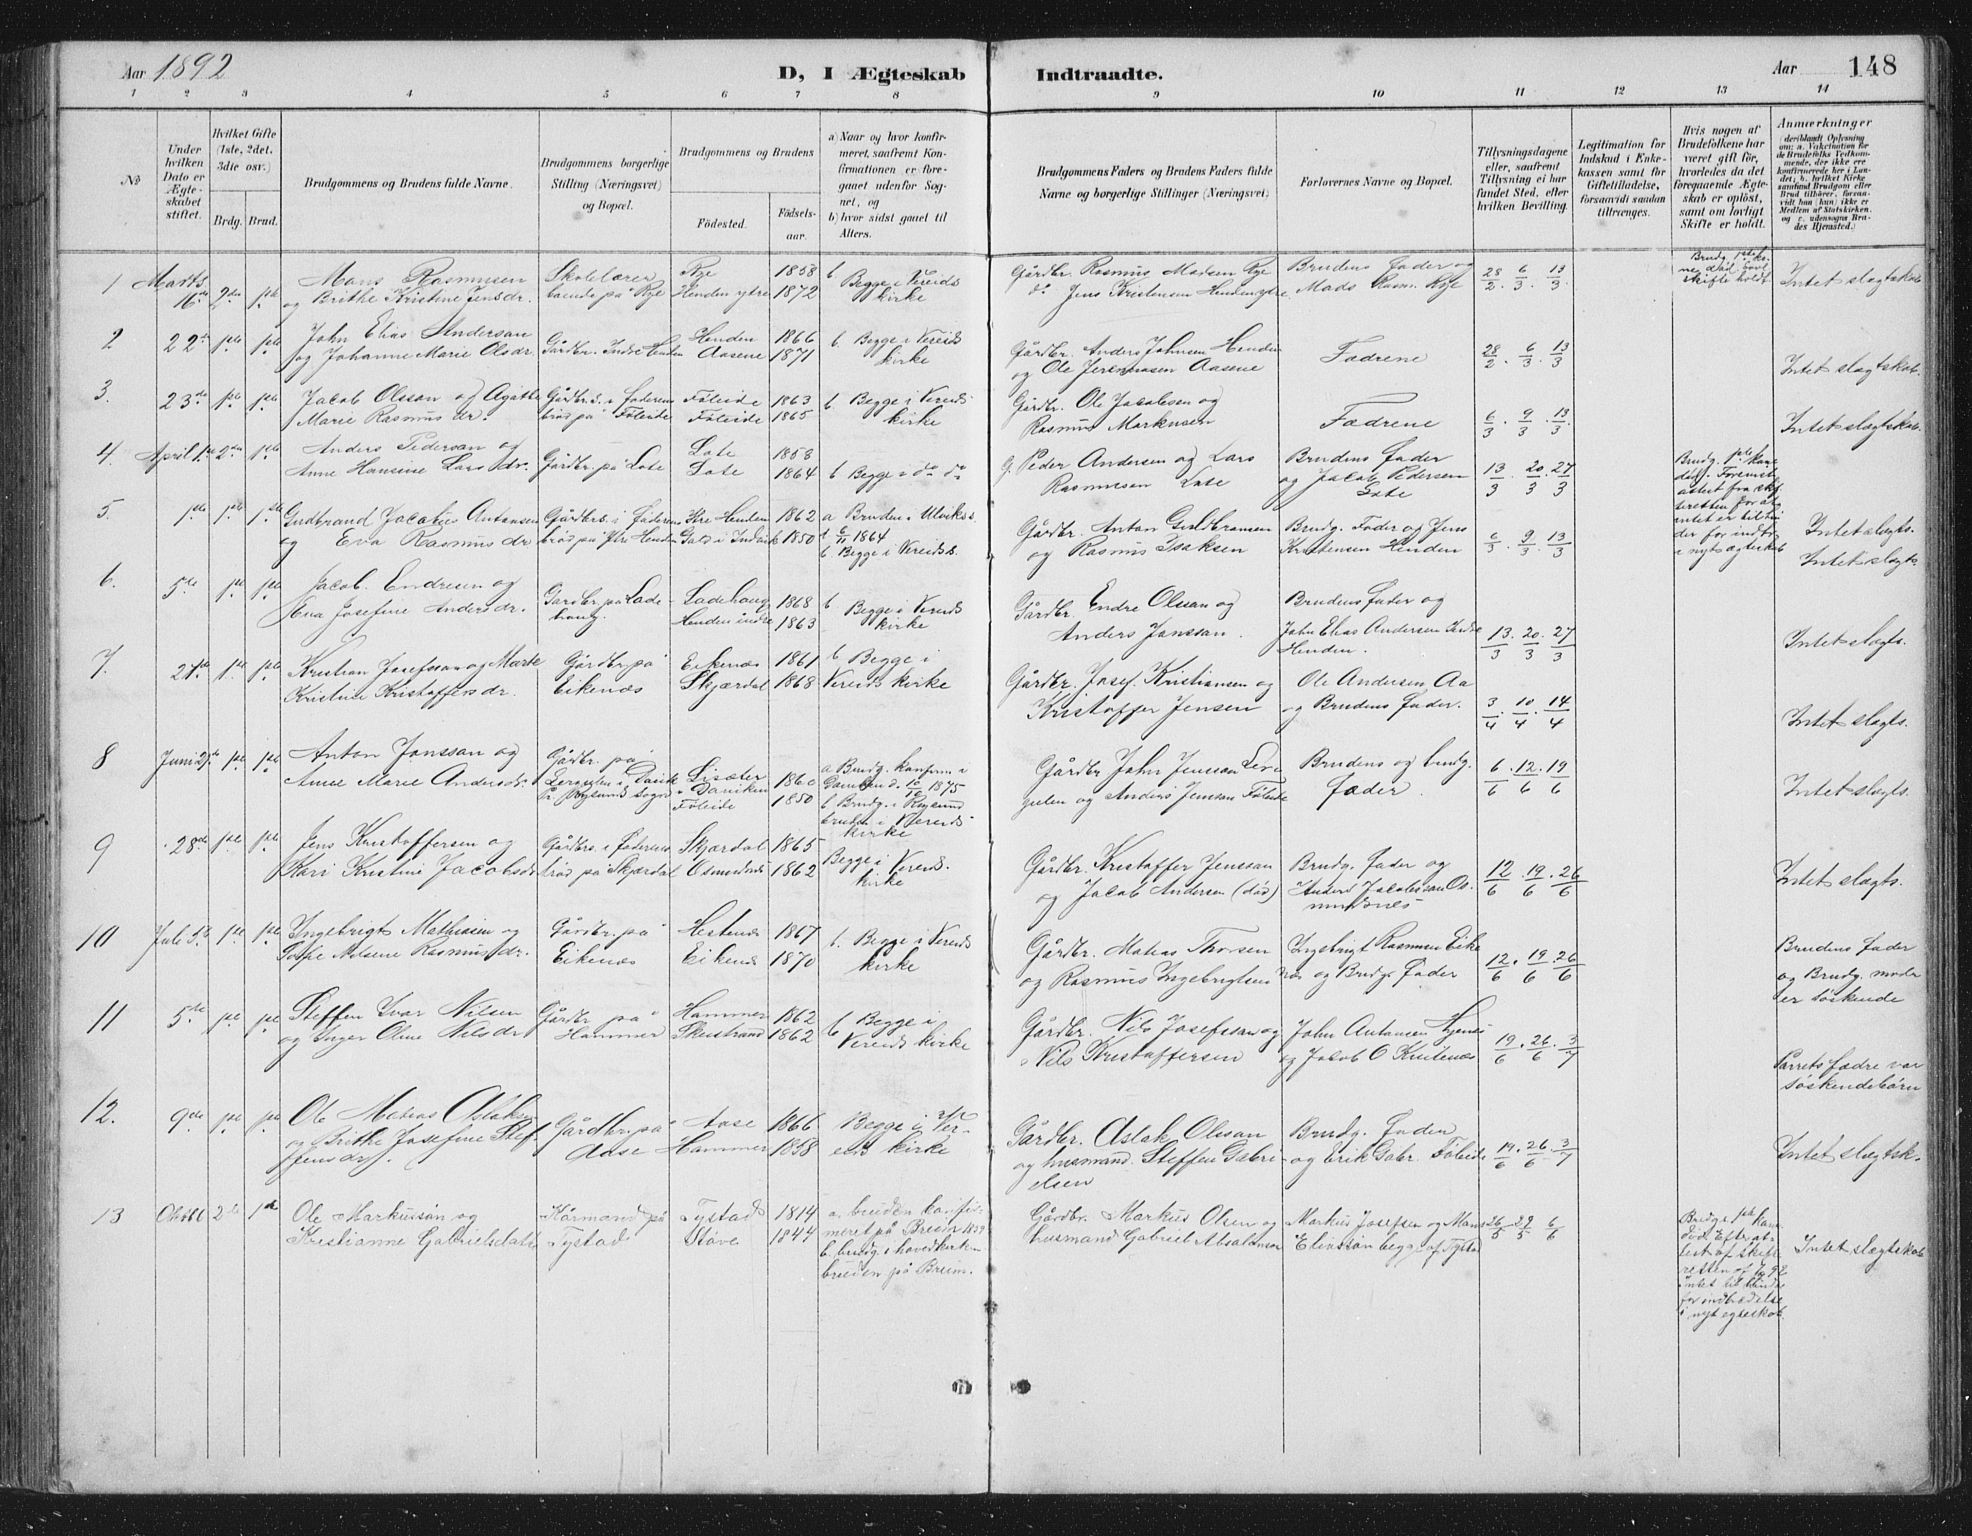 Aar 1892
D, I Ægteskab
Indtraadte.
Aar
148
1 2 3 4 5 6 7 8 9 10 11 12 13 14
No
Under hvilken Dato er Ægteskabet stiftet.
Hvilket Gifte (1ste, 2det. 3die osv.)
Brdg. Brud.
Brudgommens og Brudens fulde Navne.
Brudgommens borgerlige Stilling (Næringsvei) og Bopæl.
Brudgommens og Brudens
Födested.
Födselsaar.
a) Naar og hvor konfirmeret, saafremt Konfirmationen er foregaaet udenfor Sognet, og
b) hvor sidst gaaet til Alters.
Brudgommens Faders og Brudens Faders fulde Navne og borgerlige Stillinger (Næringsvei)
Forlovernes Navne og Bopæl.
Tillysningsdagene eller, saafremt Tillysning ei har fundet Sted, efter hvilken Bevilling.
Legitimation for Indskud i Enkekassen samt for Giftetilladelse, forsaavidt saadan tiltrænges.
Hvis nogen af Brudefolkene har været gift för, hvorledes da det foregaaende Ægteskab er oplöst, samt om lovligt Skifte er holdt.
Anmærkninger
(deriblandt Oplysning om: a. Vakcination for de Brudefolks Vedkommende, der ikke ere konfirmerede her i Landet; b. hvilket Kirkesamfund Brudgom eller Brud tilhörer, forsaavidt han (hun) ikke er Medlem af Statskirken. og c. udensogns Brudes Hjemsted.)
1 Marts 16de 2den 1ste Mons Rasmusen Skolelærer Rye 1858 b Begge i Vereids Gårdbr. Rasmus Madsen Rye Brudens fader og 28/2 . 6/3 . 13/3 Intet slægtskab
og Brithe Kristine Jensdr. boende på Rye Henden ydre 1872 kirke do Jens Kristensen Henden ydre Mads Rasm. Rye
2 22de 1ste 1ste John Elias Anderson Gårdbr. Indre Henden Henden 1866 b Begge i Vereids Gårdbr. Anders Johnsen Henden Fædrene 28/2 . 6/3 . 13/3
og Johanne Marie Olsdr. Aasene 1871 kirke og Ole Jeremiasen Aasene Intet slægtskab.
3. 23de 1ste 1ste Jacob Olsson og Agathe Gårdbrs. i faderens Føleide 1863 b Begge i Vereids Gårdbr. Ole Jacobsen og
Marie Rasmusdr. brød på Føleide Føleide 1865 kirke Rasmus Markusen Fædrene 6/3 . 9/3 . 13/3 Intet slægtskab.
4. April 1ste 2den 1ste Anders Pederson og Gårdbr. på Lote Lote 1858 G. Peder Andersen og Lars Brudens fader
Anne Hansine Larsdr. Lote 1864 b Begge i do do Rasmusen Lote og Jacob Pedersen Lote 13/3 . 20/3 . 27/3
5. 1ste 1ste Gudbrand Jacobus Antonsen Gårdbrs. i faderens Ytre Henden 1862 a Bruden i Ulviks. Gårdbr. Anton Guldbransen Brudg. Fader og Jens 6/3 . 9/3 . 13/3 Intet slægts.
og Eva Rasmusdr brød på Ytre Henden 1850 1864 b Begge i Vereids. og Rasmus Isaksen Kristensen Henden Intet slægts
6. 5te 1ste 1ste Jacob Endresen og Gårdbr. på Ladehaug. Ladehaug 1868 b Begge i Vereids Gårdbr. Endre Olsson og Brudens fader og
Eva Josefine Andersdr. Henden indre 1863 kirke Anders Jonssan. John Elias Andersen Indre Henden. 13/3 . 20/3 . 27/3 Intet slægts.
7. 21de 1ste 1ste Kristian Josefsson og Marte Gårdbr. på Eikenæs 1861 b Begge i Gårdbr. Josef. Kristiansen og Ole Andersen Aa
Kristine Kristoffersdr. Eikenæs Skjærdal 1868 Vereids kirke Kristoffer Jensen og Brudens fader. 3/4 . 10/4 . 14/4 Intet slægts.
8 Juni 1ste 1ste Anton Jonssan og Gårdbr. på Lisæter 1860 a Brudg. konfirm. i Gårdbr John Jensson Brudens og brudg. 6/6 . 12/6 . 19/6
Anne Marie Andersdr. Føleide 1850 1875 og Anders Jensson Føleide fader. Intet slægts.
b Brudg. i
bruden i Vereids kirke
9 28de 1ste 1ste Jens Kristoffersen og Gårdbrs. i faderens Skjærdal 1865 Begge i Vereids. kirke Gårdbr. Kristoffer Jenssan Brudg. fader og 12/6 . 19/6 . 26/6 Intet slægts.
Kari Kristine Jacobsdr brød på Skjærdal Osmundnes 1862 og Jacob Andersen (død) Anders Jacobssan Osmundnes
10 Juli 5te 1ste 1ste Ingebrigt Mathiasen og Gårdbr. på Hestenæs 1867 b. Begge i Vereids Gårdbr. Matias Thorsen Ingebrigt Rasmusen Eikenæs og Brudg. fader 12/6 . 19/6 . 26/6 Brudens fader
Rasmusdr. Eikenæs Eikenæs 1870 kirke og Rasmus Ingebrigtsen og Brudg. moder
er søskende
11 5te 1ste 1ste Steffen Ivar Nilsen Gårdbr. på Hammer 1862 b Begge i Gårdbr. Nils Josefssan og John Antonsen Hjenes 19/6 . 26/6 . 3/7
og Inger Oline Nilsdr Hammer Skeistrand 1862 Vereids kirke Nils Kristoffersen og Jacob O Kvitenæs Parrets fædre var
søskendebørn
12. 9de 1ste 1ste Ole Matias Aslaksen Gårdbr. på Aase 1866 Begge i Ver- Gårdbr. Aslak Olssan Brudg. fader
og Brithe Josefine Stef- Aase Hammer 1858 eids kirke og husmand. Steffen Gabri- og Erik Gabr. Føleide 19/6 . 26/6 . 3/7 Intet slægtsk.
fensdr. elsen
13 2den 1ste Ole Markusson og Kårmand på Tystad 1814 a. bruden konfir- Gårdbr. Markus Olsen og Markus Josefsen og Mons 26/5 29/5 6/6
Kristianne Gabrielsdatter Tystad Støve 1844 meret på Breim 1859 husmand Gabriel Absalonsen Eliasson begge af Tystad Intet slægtskab
b. brudg. i hovedkirken
bruden på Breim.